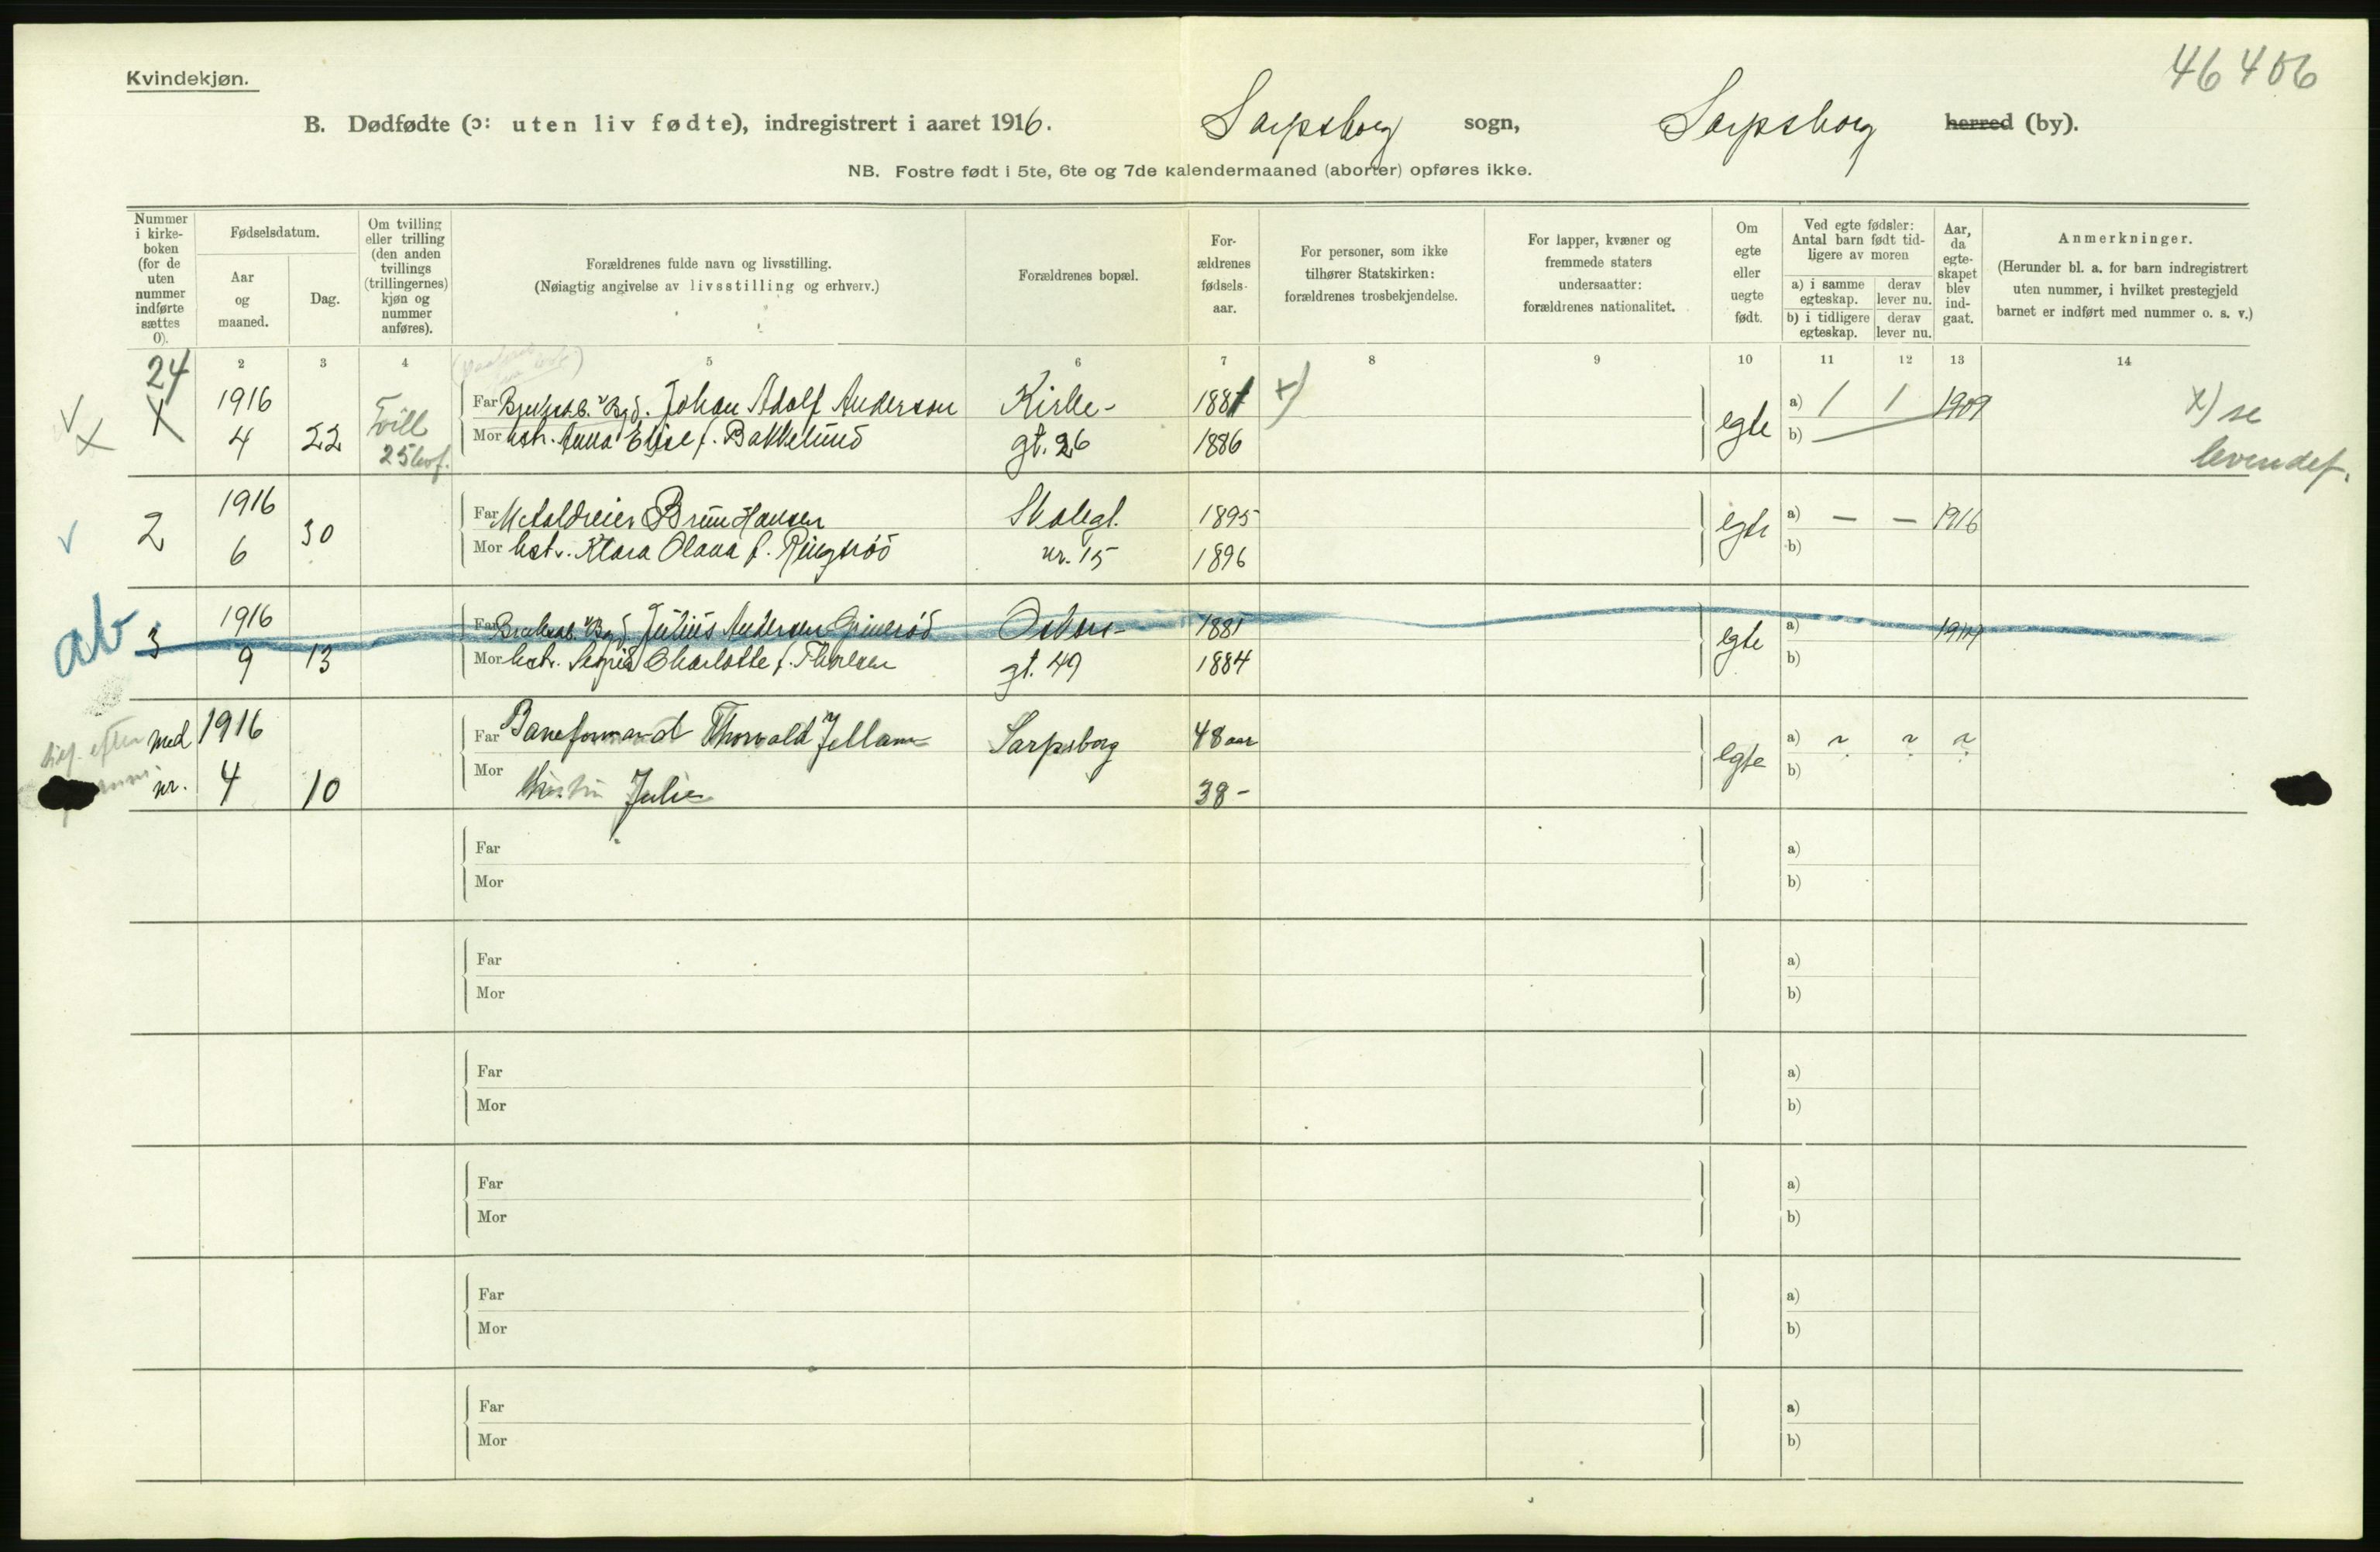 46 406
Kvindekjøn.
B. Dødfødte (ɔ: uten liv fødte), indregistrert i aaret 1916. Sarpsborg sogn, Sarpsborg herred (by).
NB. Fostre født i 5te, 6te og 7de kalendermaaned (aborter) opføres ikke.
Nummer i kirke-boken (for de uten nummer indførte sættes 0).
Fødselsdatum.
Aar og maaned.
Dag.
Om tvilling eller trilling (den anden tvillings (trillingernes) kjøn og nummer anføres).
Forældrenes fulde navn og livsstilling.
(Nøiagtig angivelse av livsstilling og erhverv.)
Forældrenes bopæl.
For-ældrenes fødsels-aar.
For personer, som ikke tilhører Statskirken: forældrenes trosbekjendelse.
For lapper, kvæner og fremmede staters undersaatter: forældrenes nationalitet.
Om egte eller uegte født.
Ved egte fødsler: Antal barn født tid-ligere av moren
a) i samme egteskap. derav lever nu.
b) i tidligere egteskap. derav lever nu.
Aar, da egte-skapet blev ind-gaat.
Anmerkninger.
(Herunder bl. a. for barn indregistrert uten nummer, i hvilket prestegjeld barnet er indført med nummer o. s. v.)
2 3 4 5 6 7 8 9 10 11 12 13 14
24
1916 Tvill Far Johan Adolf Andersen Kirke- 1881 x) egte a) 1 1 1909 x) se
4 22 Mor hstr. Anna Elise f. Bakkelund gt. 26 1886 b) levendef.
2 1916 30 Far Metaldreier Brun Hansen Skolegt. 1895 egte a) — — 1916
6 Mor hstr. Klara Olava f. nr. 15 1896 b)
ab 3 1916 Far Julius Andersen Grimsrød Oskars- 1881 egte a)
9 13 Mor hstr. Charlotte f. Thoresen gt. 49 1884 b)
Med 1916 Far Baneformand Thorvald Sarpsborg 48 aar egte a) ? ? ?
nr. 4 10 Mor Julie 38 - b)
Far a)
Mor b)
Far a)
Mor b)
Far a)
Mor b)
Far a)
Mor b)
Far a)
Mor b)
Far a)
Mor b)